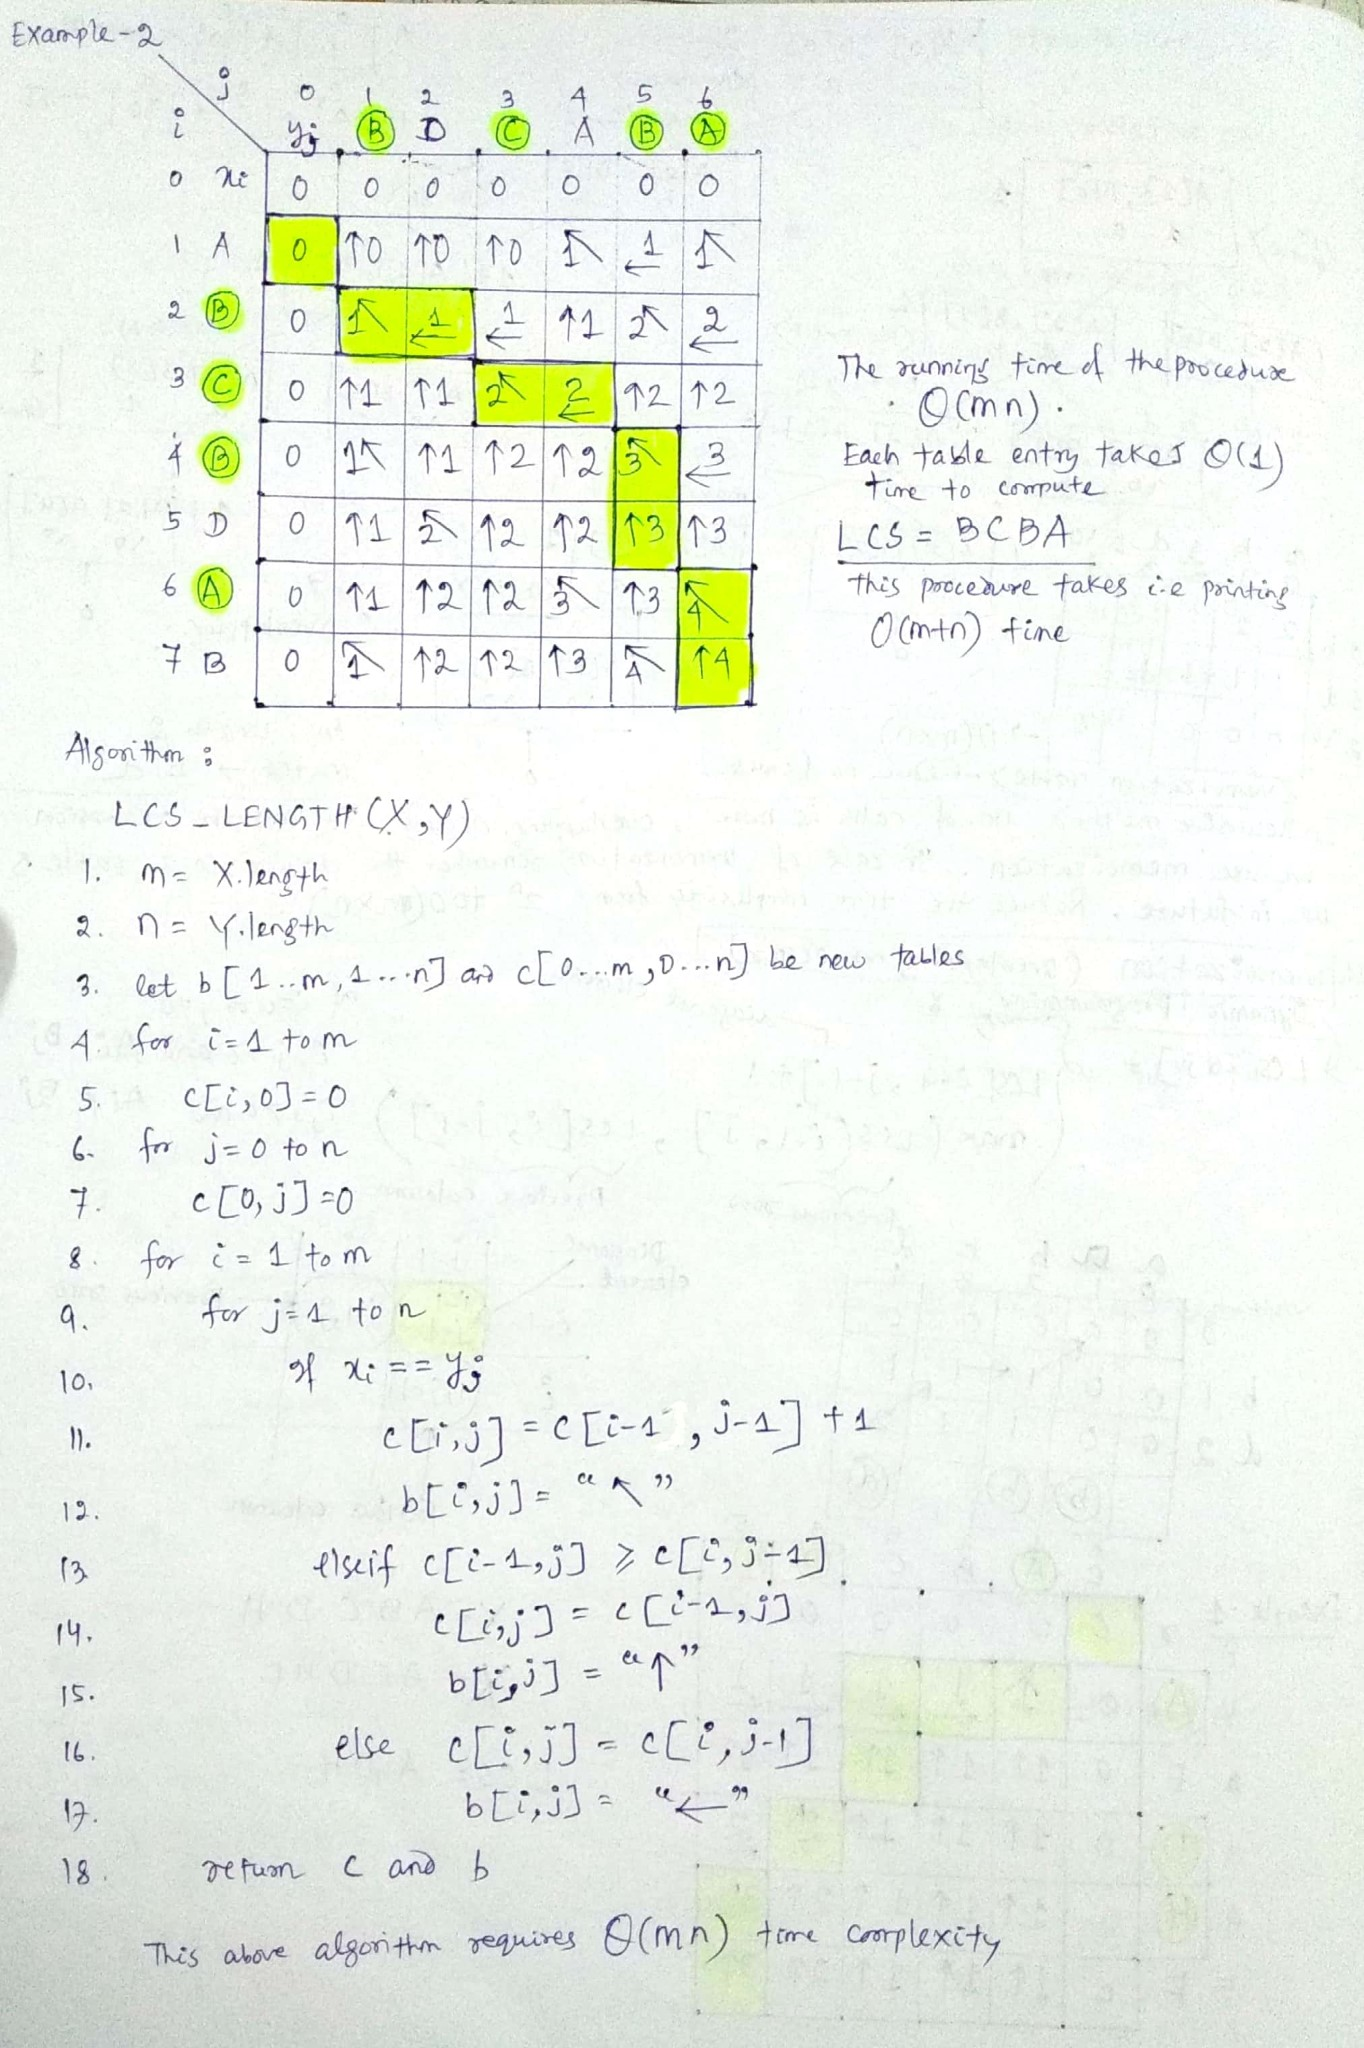 Example-2
j 0 1 2 3 4 5 6
i yj B D C A B A
0 xi 0 0 0 0 0 0 0
1 A 0 ↑0 ↑0 ↑0 1↖ ←1 1↖
2 B 0 1↖ ←1 ←1 ↑1 2↖ ←2
3 C 0 ↑1 ↑1 2↖ ←2 ↑2 ↑2
4 B 0 1↖ ↑1 ↑2 ↑2 3↖ ←3
5 D 0 ↑1 2↖ ↑2 ↑2 ↑3 ↑3
6 A 0 ↑1 ↑2 ↑2 3↖ ↑3 4↖
7 B 0 1↖ ↑2 ↑2 ↑3 4↖ ↑4
The running time of the procedure
O(mn).
Each table entry takes O(1)
time to compute
LCS = BCBA
this procedure takes i.e printing
O(m+n) time
Algorithm :
LCS_LENGTH (X,Y)
1. m = X.length
2. n = Y.length
3. let b[1..m,1...n] and c[0...m,0...n] be new tables
4. for i=1 to m
5. c[i,0]=0
6. for j=0 to n
7. c[0,j]=0
8. for i=1 to m
9. for j=1 to n
10. if xi == yj
11. c[i,j] = c[i-1, j-1] +1
12. b[i,j] = "↖"
13 elseif c[i-1,j] ≥ c[i,j-1]
14. c[i,j] = c[i-1,j]
15. b[i,j] = "↑"
16. else c[i,j] = c[i,j-1]
17. b[i,j] = "←"
18. return c and b
This above algorithm requires Θ(mn) time complexity